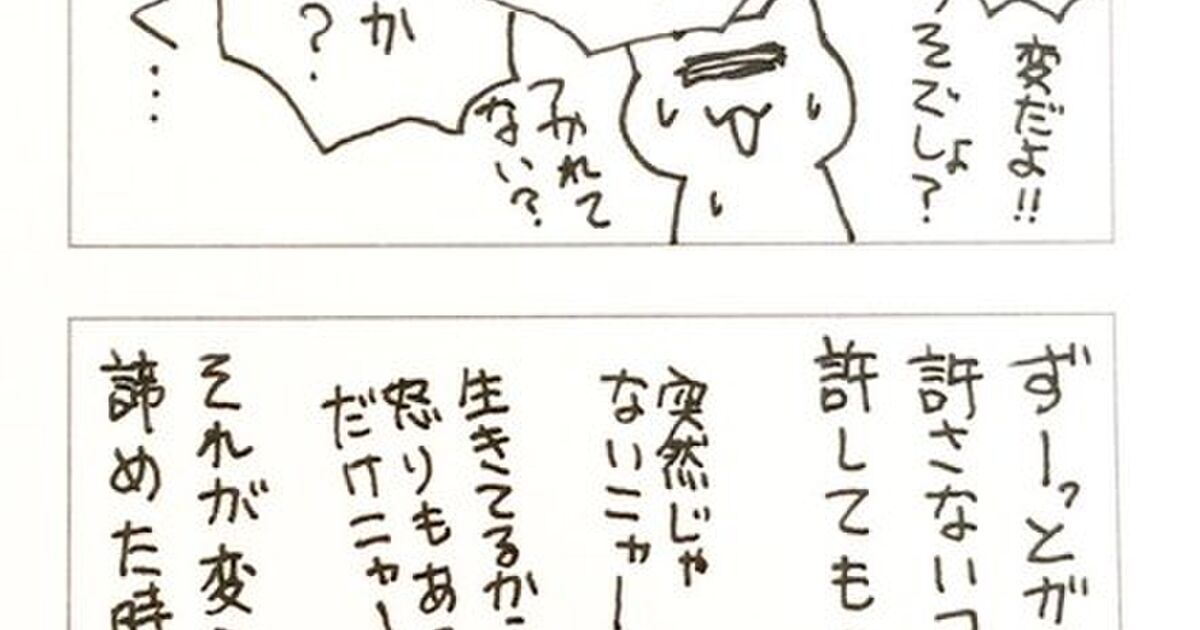 変だよ!!
うそでしょ?
つかれて
ない?
か
?
く…
ずーっとガ
許さない
許しても
突然じゃ
ないニャー
生きてるか
怒りもあ
だけニャー
それが変
諦めた時